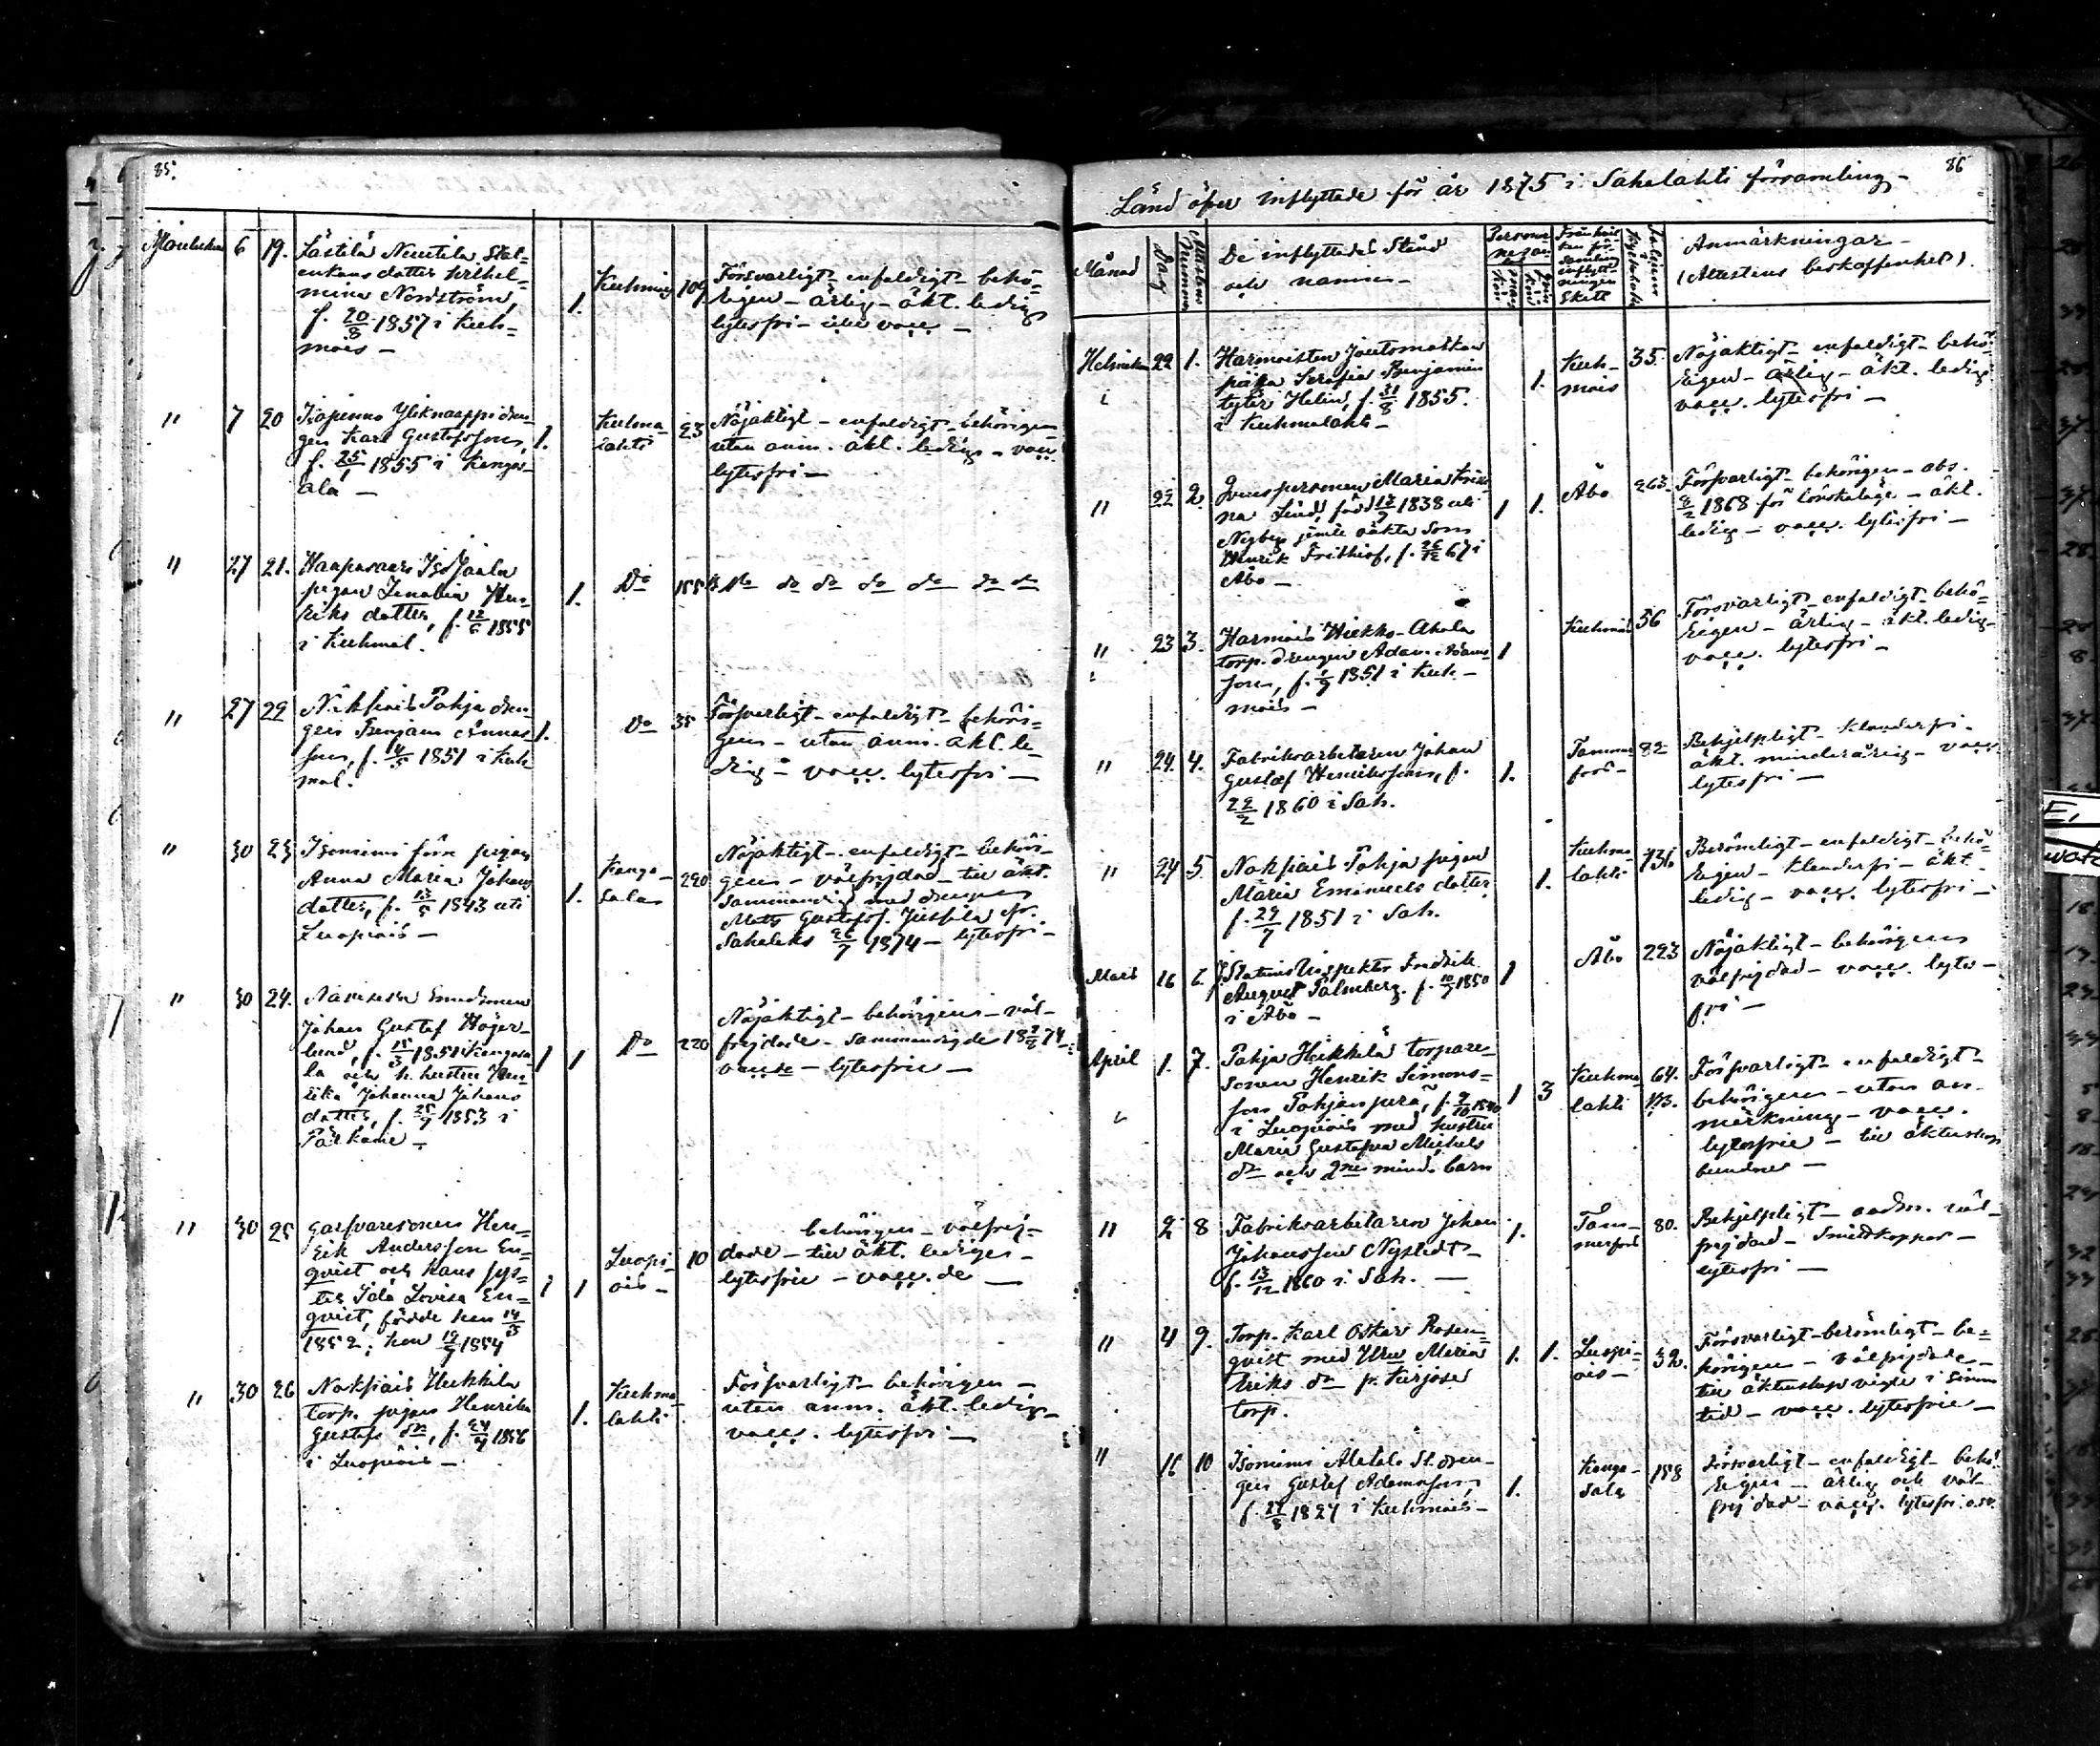 85.
Joulukuu 6 19. Lästilä Nuutila Stat-
enkans dotter Wilhel-
mina Nordström,
f. 20/8 1857 i Kuh-
mois —
1. Kuhmois 109 Försvarligt - enfaldigt - behö-
rigen - ärlig - äkt. ledig
lytesfri - vacc —
" 7 20 Isopenno Yliknaappi dren-
gen Karl Gustafsson,
f. 25/1 1855 i Kangas-
ala —
1. Kuhma-
lahti 23 Nöjaktigt - enfaldigt - behörigen
utan anm. äkt. ledig - vacc
lytesfri —
" 27 21. Haapasaari Isojaala
pigan Henrika Hen-
riks dotter, f. 12/6 1855
i Kuhmal.
1. Do 155 do do do do do do
" 27 22 Nikkais Pohja dren-
gen Benjam Annas
son, f. 4/5 1851 i Kuh-
mal.
1. Do 35 Försvarligt - enfaldigt - behöri-
gen - utan anm. äkt. le-
dig - vacc. lytesfri —
" 30 23 Isoniemi förra pigan
Anna Maria Johans
dotter, f. 13/5 1843 uti
Luopiois —
1. Kanga-
sala 220 Nöjaktigt - enfaldigt - behöri-
gen - välfrejdad - till äkt.
sammanvigd med drengen
Matts Gustafsf. Jussila fr.
Sahalaks 26/7 1874 - lytesfri -
" 30 24. Smedsonen
Johan Gustaf Höger-
lund, f. 15/3 1851 i Kangasa-
la och h. hustru Hen-
rika Johanna Johans
dotter, f. 25/9 1853 i
Pälkäne —
1 1 Do 220 Nöjaktigt - behörigen - väl-
frejdade - sammanvigde 18 74 -
vacc:de - lytesfrie —
" 30 25 Garfvaresonen Hen-
rik Andersson En-
qvist och hans sys-
ter Ida Lovisa En-
qvist, födde han 14/3
1852; hon 19/9 1854
1 1 Luopi-
ois - 10 behörigen - välfrej-
dade - till äkt. lediga -
lytesfrie - vacc.de —
" 30 26 Nakkais Heikkilä
torp. pigan Henrika
Gustafs dr, f. 24/4 1856
i Luopiois —
1. Kuhma-
lahti Försvarligt - behörigen -
utan anm. äkt. ledig -
vacc. lytesfri —
86
Länd öfver inflyttade för år 1875 i Sahalahti församling -
Månad
Dag
Attestens Nummer
De inflyttades Stånd
och namn -
Personer-
nes antal
Mankön
Qvinkön
Från hvil-
ken för-
samling
inflytt-
ningen
skett
Anmärkningar -
(Attestens beskaffenhet).
Helmikuu 22 1. Harmoisten Joutsmäskan
piga Serafia Benjamin
tytär Helin, f. 31/8 1855.
i Kuhmalaht -
1. Kuh-
mois 35. Nöjaktigt - enfaldigt - behö-
rigen - ärlig - äkt. ledig
vacc. lytesfri —
" 22 2. Qvinspersonen Maria Kristi-
na Lind, född 13/7 1838 uti
Nyby jemte oäkta son
Henrik Frithiof, f. 26/12 67 i
Åbo —
1 1. Åbo 263. Försvarligt - behörigen - abs.
8/2 1868 för lönskaläge - äkt.
ledig - vacc. lytesfri —
" 23 3. Harmois Heikko-Ahola
torp. drengen Adam Adams-
son, f. 1/9 1851 i Kuh-
mois —
1 Kuhmois 56 Försvarligt - enfaldigt - behö-
rigen - ärlig - äkt. ledig -
vacc. lytesfri -
" 24. 4. Fabriksarbetaren Johan
Gustaf Henriksson, f.
22/2 1860 i Sah.
1. Tammer-
fors - 82 Behjelpligt - klanderfri -
äkt. minderårig - vacc
lytesfri —
" 24 5. Nakkais Pohja pigan
Maria Emanuels dotter
f. 29/7 1851 i Sah.
1. Kuhma-
lahti 136 Berömligt - enfaldigt - behö-
rigen - klanderfri - äkt.
ledig - vacc. lytesfri -
Mars 16 6. Stations Inspektor Fredrik
August Palmberg. f. 10/7 1850
i Åbo —
1 Åbo 223 Nöjaktigt - behörigen
välfrejdad - vacc. lytes-
fri —
April 1. 7. Pohja Heikkilä torpare-
sonen Henrik Simons-
son Pohjanperä, f. 9/10 1840
i Luopiois med hustru
Maria Gustafva Michels
dr och 2ne mind. barn
1 3 Kuhma-
lahti 64.
113. Försvarligt - enfaldigt -
behörigen - utan an-
märkning - vacc.
lytesfrie - till äktenskap
bundne —
" 2 8 Fabriksarbetaren Johan
Johansson Nystedt -
f. 13/12 1860 i Sah. —
1. Tam-
merfors 80. Behjelpligt - väl-
frejdad - Smittkoppor -
lytesfri —
" 4 9. Torp. Karl Oskar Rosen-
qvist med Hru Maria
Eriks dr fr. Kirjose
torp.
1. 1. Luopi-
ois - 32. Försvarligt - berömligt - be-
hörigen - välfrejdade -
till äktenskap vigde i sinom
tid - vacc. lytesfrie —
" 16 10 Isoniemi Alatalo St. dren-
gen Gustaf Adamsson,
f. 27/8 1827 i Kuhmois -
1. Kanga-
sala 158 Försvarligt - enfaldigt - behö-
rigen - ärlig och väl-
frejdad - vacc. lytesfri